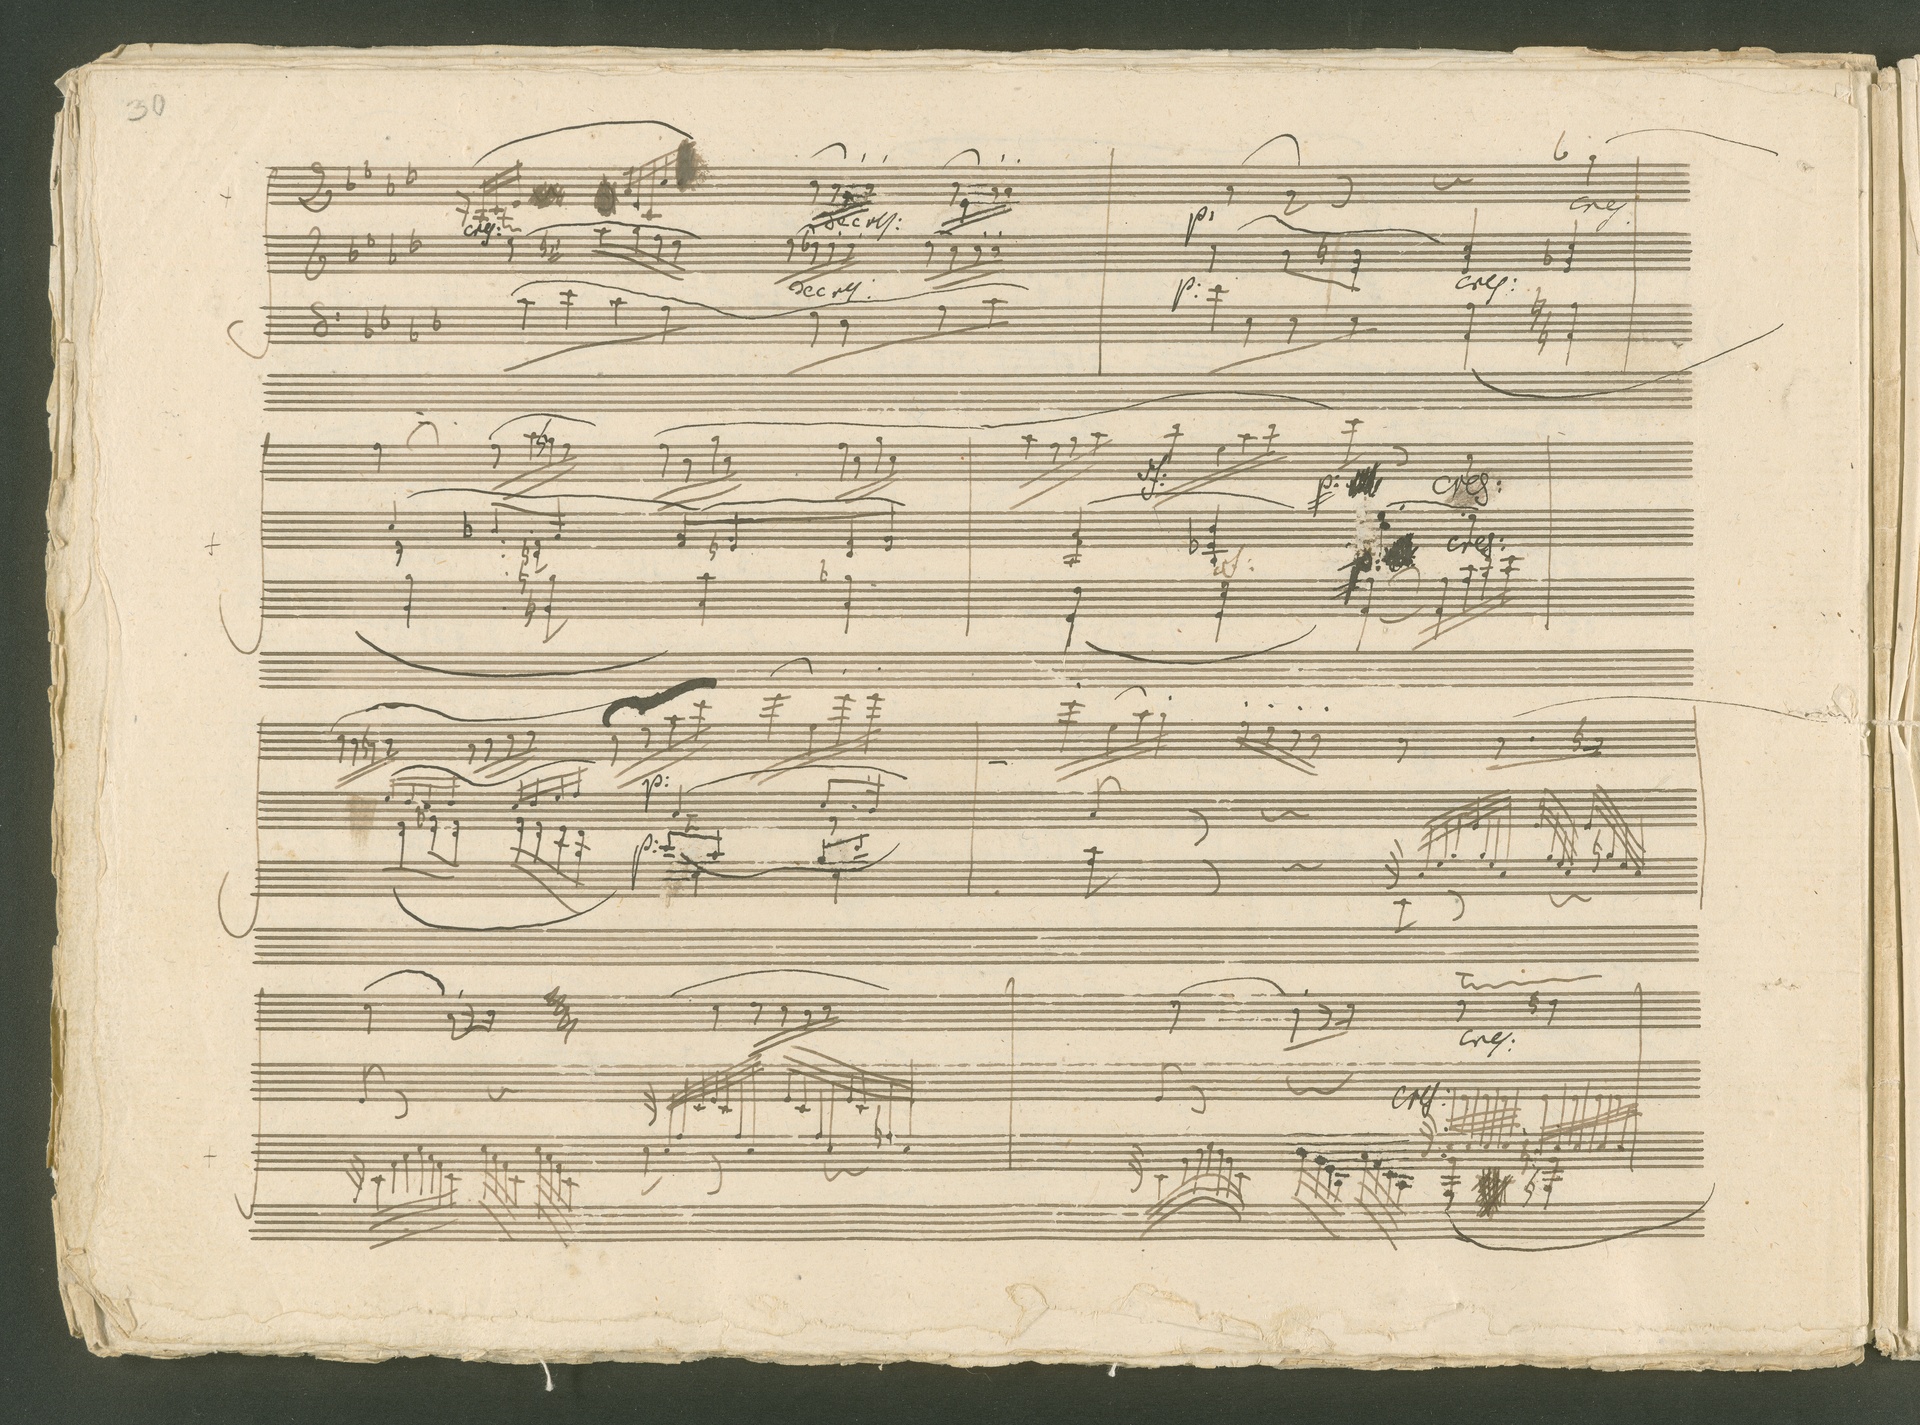 30
cres:
decres:
p:
cres:
decres:
p:
cres:
sf:
p:
cres:
sf:
p:
cres:
p:
p:
cres:
cres: